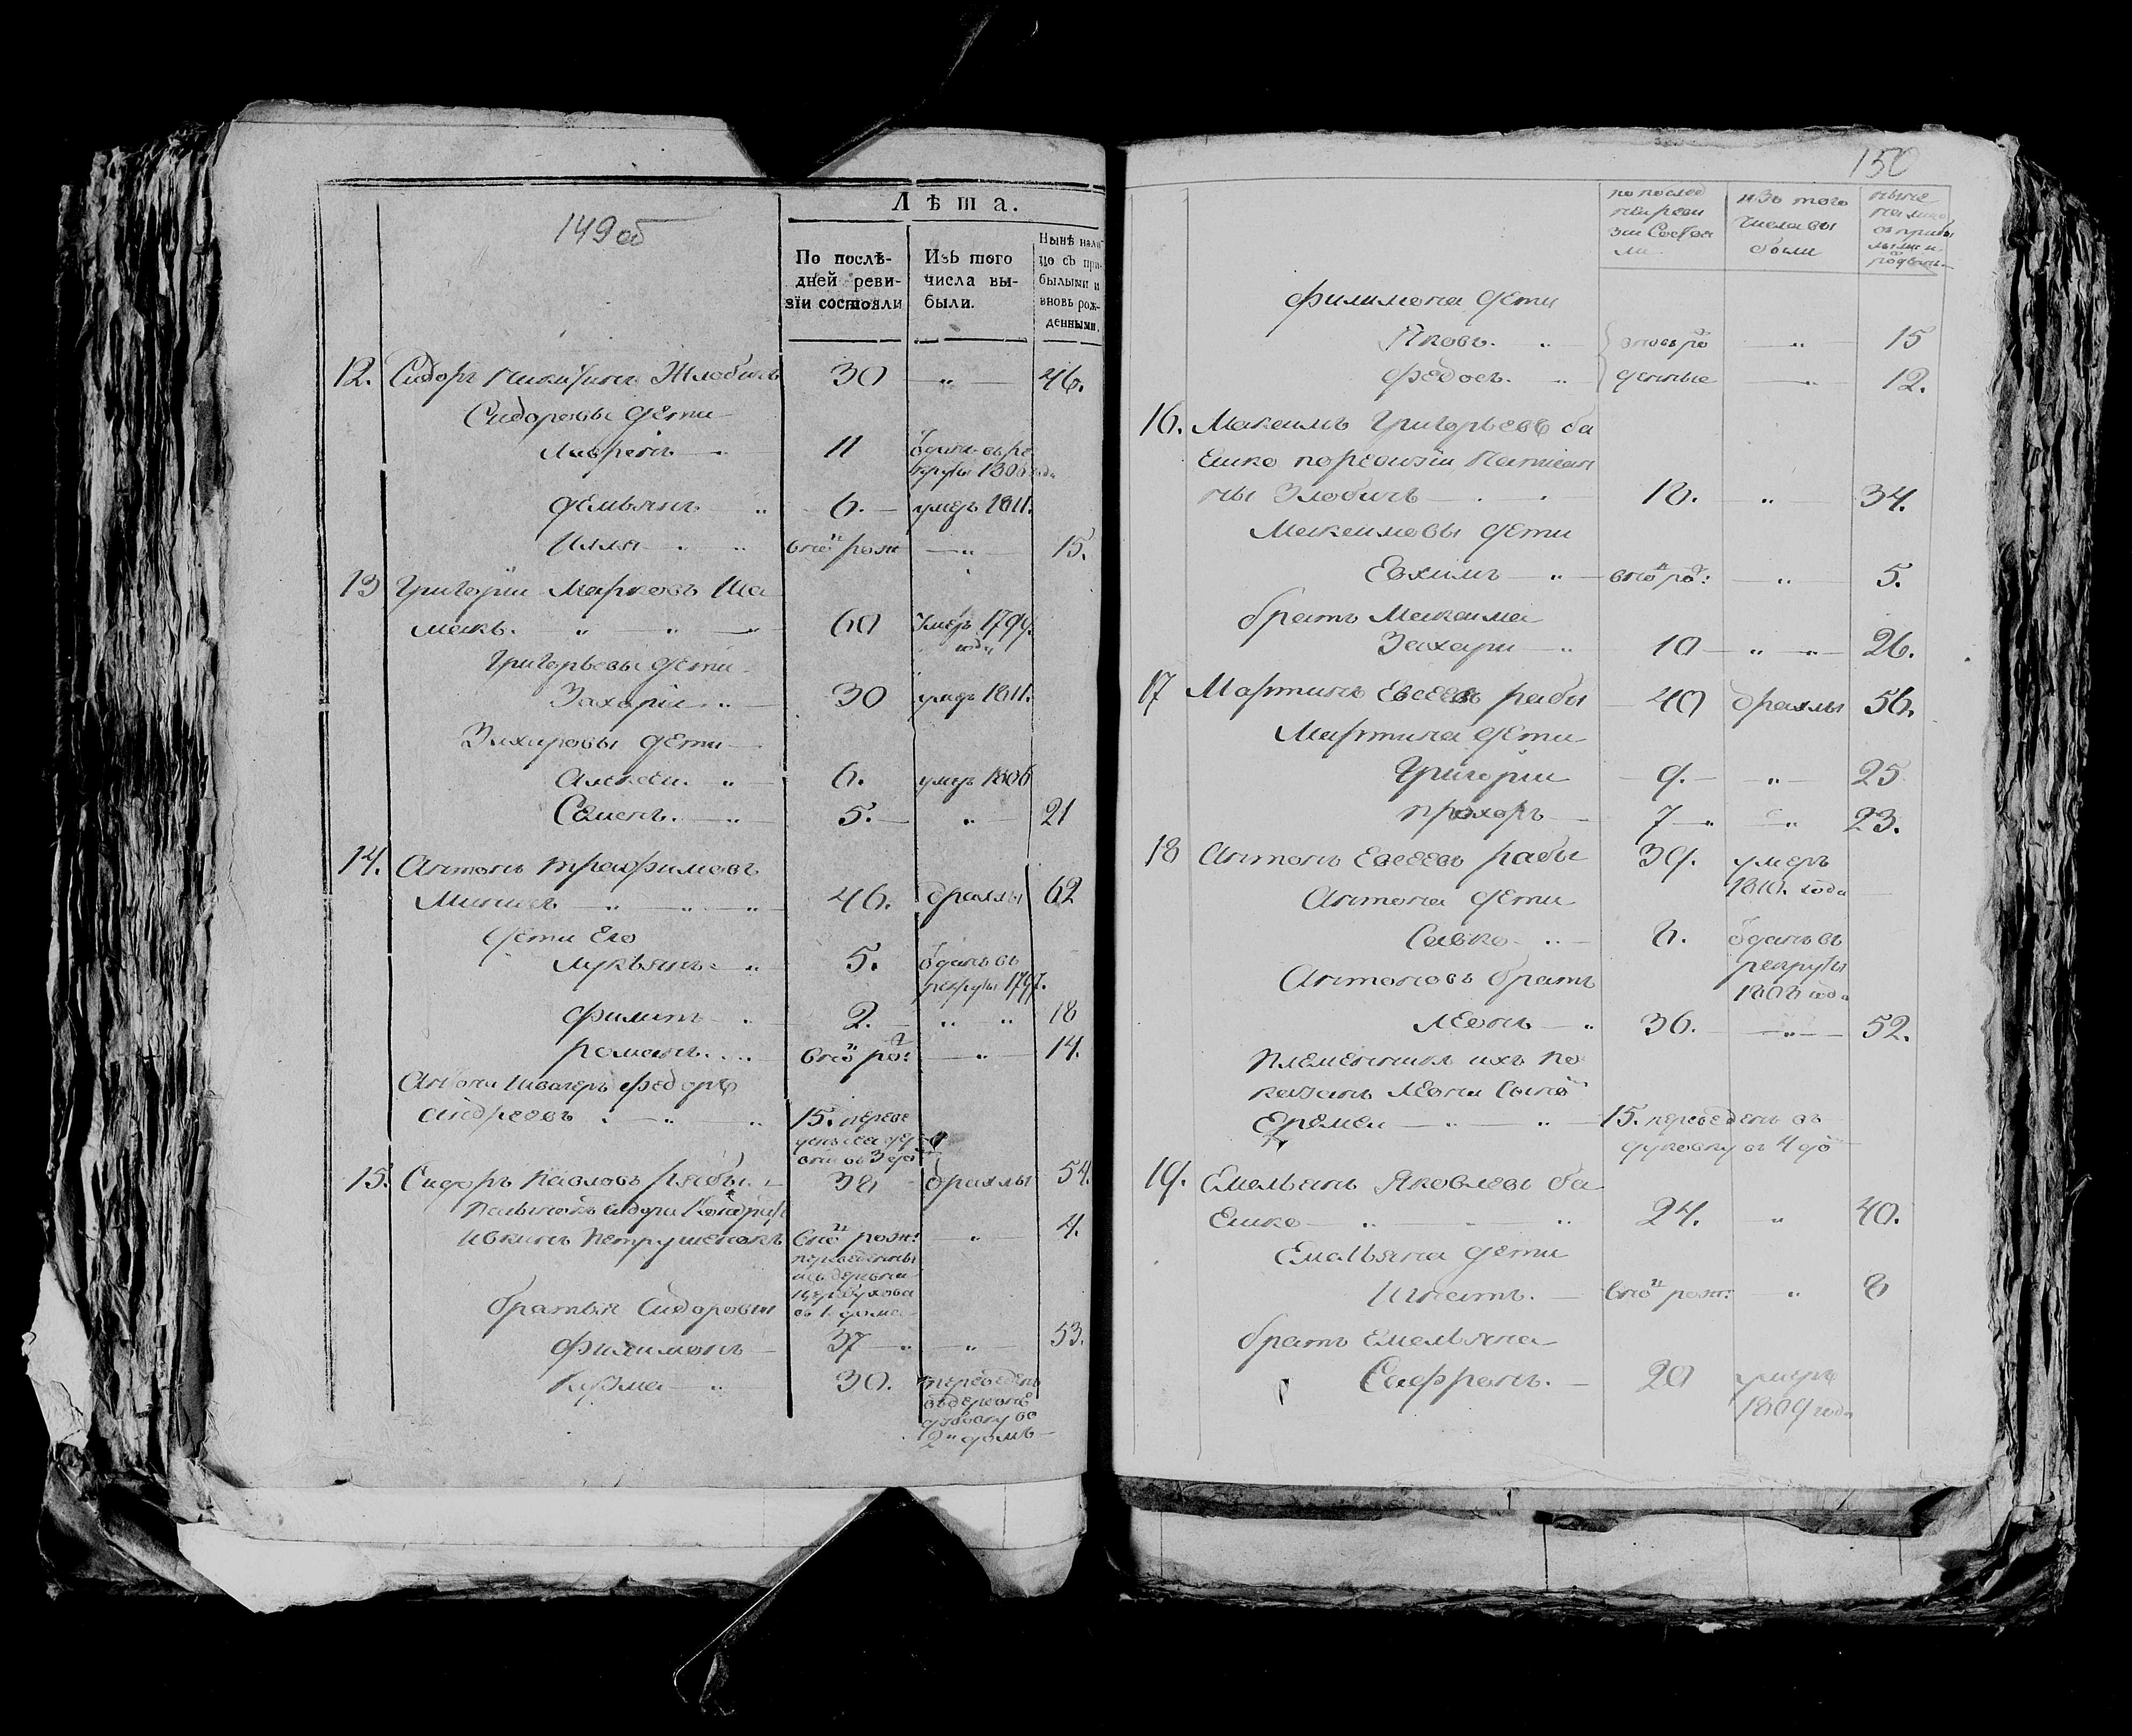 149 об
Лѣта.
По послѣ-
дней реви-
зіи состояли
Изъ того
числа вы-
были.
Нынѣ нали-
цо съ при-
былыми и
вновь рож-
денными.
12. Сидоръ Никитинъ Жлобинъ 30 „ 46.
Сидоровы дети
Лавренъ 11 отданъ въ ре
круты 1806 года
Демьянъ „ 6. умеръ 1811.
Илья „ внов рож „ 15.
13 Григорій Марковъ Ша
макъ. „ „ 60 Умеръ 1799
года
Григорьевы дети
Захарій „ 30 умеръ 1811.
Захаровы дети
Алексей „ 6. умеръ 1806
Семенъ. „ 5. „ 21
14. Антонъ Трафимовъ
„ „ „ 46. дряхлы 62
Дети Его
Лукьянъ „ 5. отданъ въ
рекруты 1797.
Филипъ „ 2. „ „ 18
Романъ „ внов ро: „ 14.
Антона Швагеръ Федоръ
Андреевъ „ „ 15. переве
15. Сидоръ Павловъ Рябы 38 дряхлы 54.
Петрушенокъ внов рож: „ 4.
переведенны
изъ деревни
братья Сидоровы
Филимонъ 37 „ „ 53.
Кузма „ 30. переведенъ
въ деревне
дуковку во
2и домъ
150
по послед
ней реви
зіи Состоя
ли
изъ того
числа вы
были
ныне
на лицо
съ прибы
лыми и
Филимона дети
Яковъ. „ вновь ро „ 15
Федосъ. „ денные „ 12.
16. Максимъ Григорьевъ ба
Ешко по ревизіи написан
ны Злобинъ 18. „ 34.
Максимовы дети
Евхимъ „ внов ро: „ 5.
братъ Максима
Захари „ 10 „ „ 26.
17 Мартинъ Евсеевъ рабы 40 дряхлы 56.
Мартина дети
Григори 9. „ 25
Прохоръ 7 „ „ 23.
18 Антонъ Евсеевъ рабы 39. умеръ
1810. года
Антона дети
Савко „ 8. отданъ въ
рекруты
1808 года
Антоновъ братъ
Леонъ „ 36. „ 52.
Племенникъ ихъ по
казанъ Леона Сыно
Еремеи „ „ 15. переведенъ въ
дуковку въ 4 до
19. Емельянъ Яковлевъ ба
Ешко „ „ 24. „ 40.
Емельяна дети
Игнатъ. внов рож: „ 8
братъ Емельяна
Сафронъ. 20 умеръ
1809 года